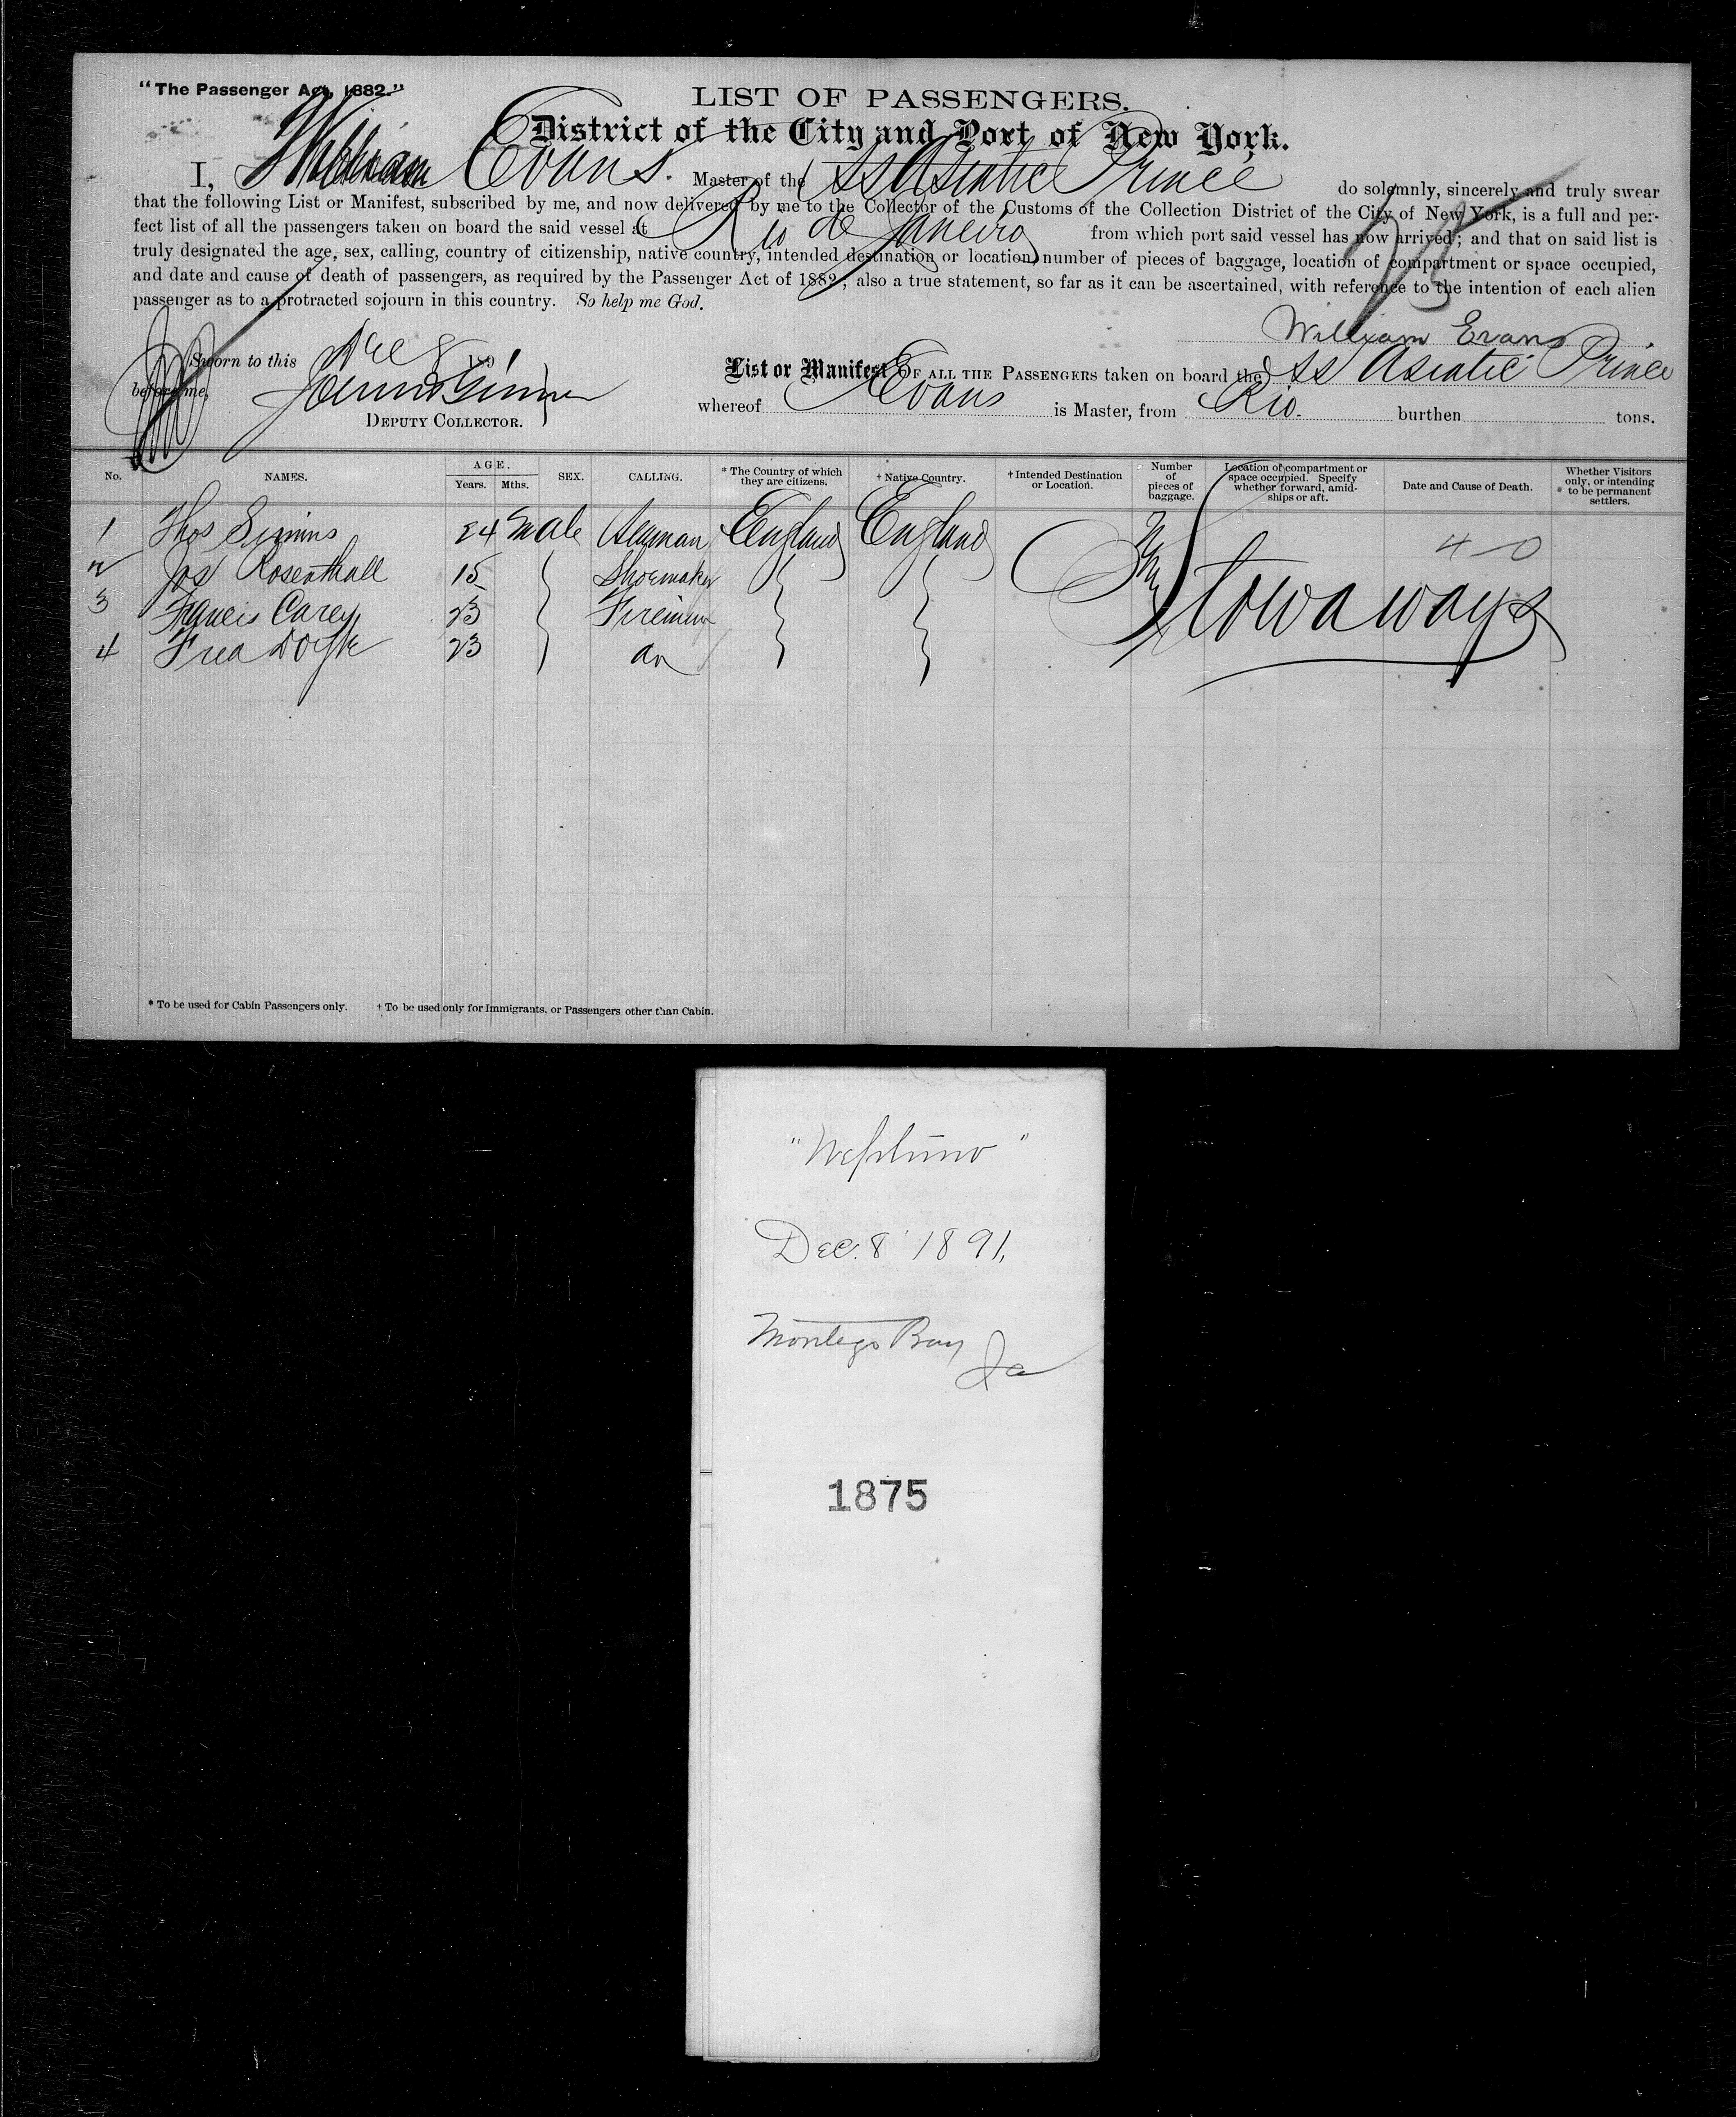 "The Passenger Act, 1882."
LIST OF PASSENGERS.
District of the City and Port of New York.
I, William Evans. Master of the SS Asiatic Prince do solemnly, sincerely and truly swear
that the following List or Manifest, subscribed by me, and now delivered by me to the Collector of the Customs of the Collection District of the City of New York, is a full and per-
fect list of all the passengers taken on board the said vessel at Rio de Janeiro from which port said vessel has now arrived; and that on said list is
truly designated the age, sex, calling, country of citizenship, native country, intended destination or location, number of pieces of baggage, location of compartment or space occupied,
and date and cause of death of passengers, as required by the Passenger Act of 1882; also a true statement, so far as it can be ascertained, with reference to the intention of each alien
passenger as to a protracted sojourn in this country. So help me God.
William Evans
Sworn to this Dec 8 1891
before me,
DEPUTY COLLECTOR.
List or Manifest OF ALL THE PASSENGERS taken on board the SS Asiatic Prince
whereof Evans is Master, from Rio. burthen tons.
No. NAMES. AGE. Years. Mths. SEX. CALLING. * The Country of which they are citizens. † Native Country. † Intended Destination or Location. Number of pieces of baggage. Location of compartment or space occupied. Specify whether forward, amid-ships or aft. Date and Cause of Death. Whether Visitors only, or intending * to be permanent settlers.
1 Thos Simms 24 Male Seaman England England 4-0
2 Jos Rosenthall 15 Shoemaker
3 Francis Carey 23 Fireman
4 Fred Doyle 23
Stowaways
* To be used for Cabin Passengers only. † To be used only for Immigrants, or Passengers other than Cabin.
"Neptuno"
Dec. 8 1891.
Montego Bay
Ja
1875